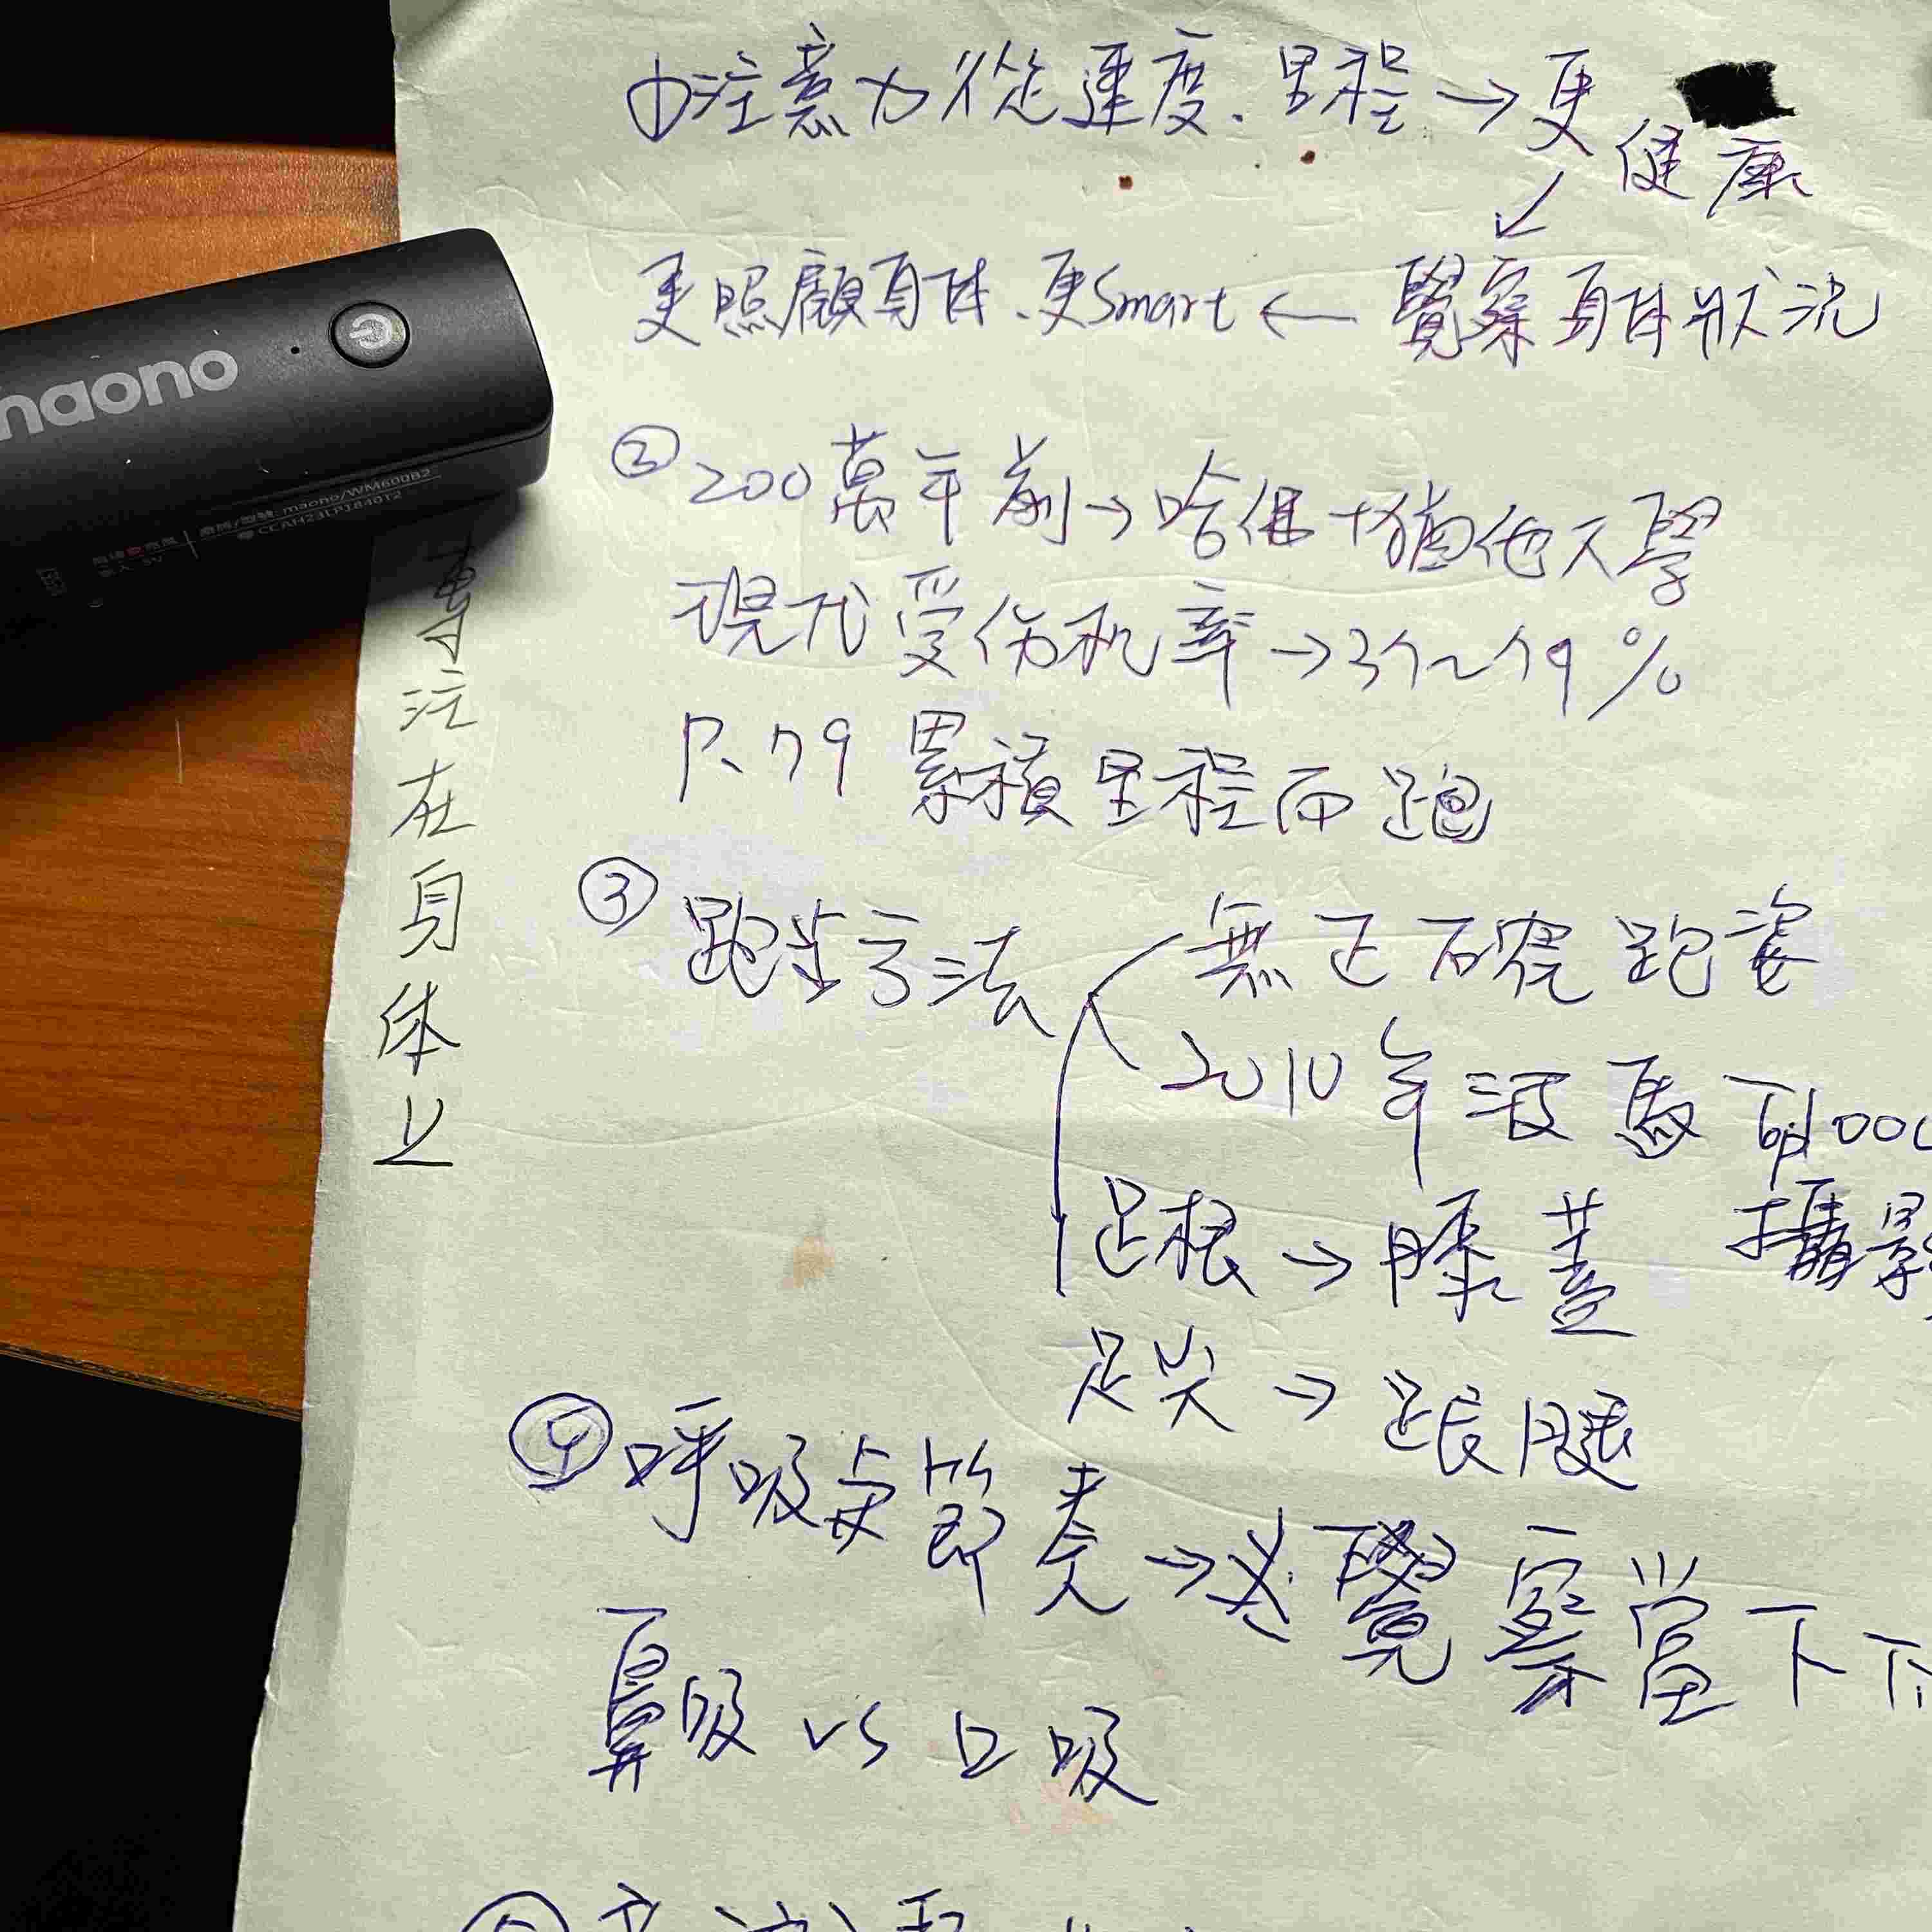 ①注意力從速度、里程→更
健康
↙
更照顧身体、更Smart ← 覺察身体狀況
②200萬年前→哈佛、猶他大學
現代受伤机率→37~79%
P.79 累積里程而跑
③跑步方法 無正確跑姿
2010年波馬 前1000
足根→膝蓋 攝影
足尖→ 腿
④呼吸与節奏→ 覺察當下
鼻吸 vs 口吸
注在身体上
maono
商品/型號: maono/WM600B2
CCAH23LP1840T2